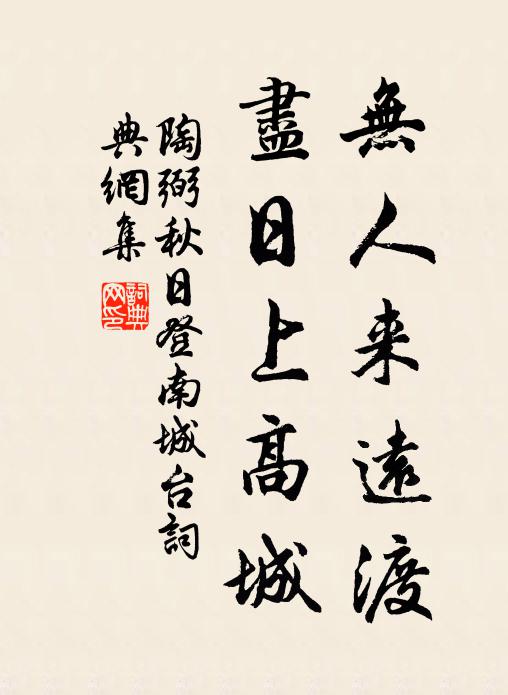 無人来遠渡
盡日上高城
陶弼秋日登南城台詞
典網集
詞典网印